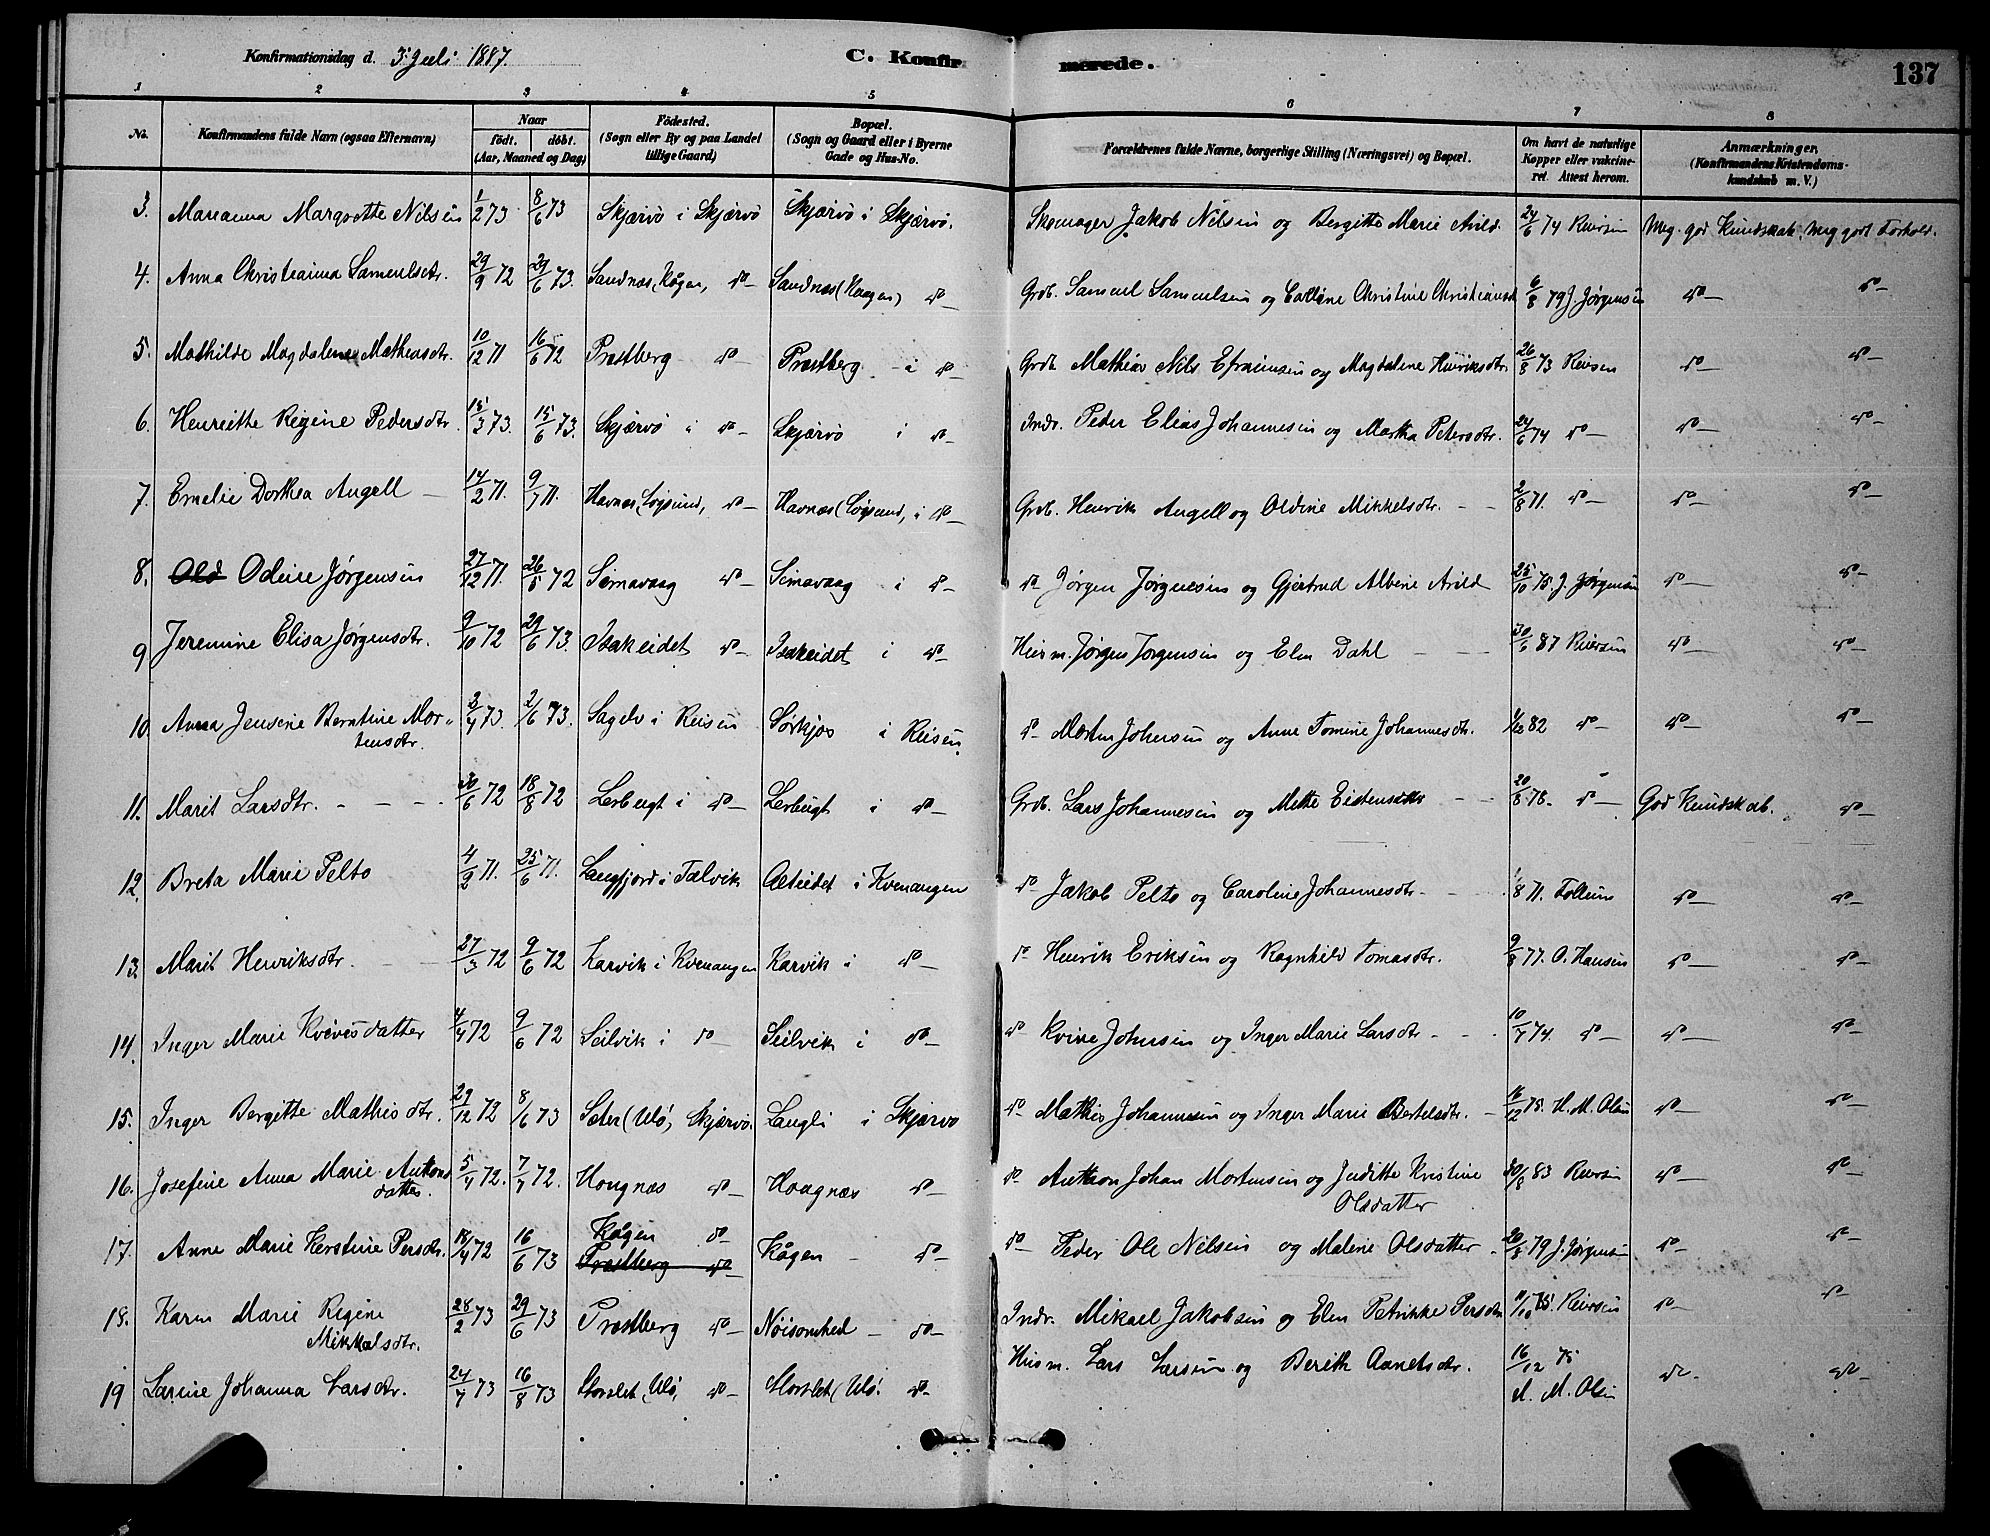 Konfirmationsdag d. 3 Juli 1887.
C. Konfirmerede.
137
1 2 3 4 5 6 7 8
No. Konfirmandens fulde Navn (ogsaa Efternavn) Naar født. døbt. (Aar, Maaned og Dag) Fødested. (Sogn eller By og paa Landet tillige Gaard) Bopæl. (Sogn og Gaard eller i Byerne Gade og Hus-No. Forældrenes fulde Navne, borgerlige Stilling (Næringsvei) og Bopæl. Om havt de naturlige Kopper eller vakcineret. Attest herom. Anmærkninger. (Konfirmandens Kristendomskundskab m. V.)
3. Marianna Margrette Nilsen 1/2 73 8/6 73 Skjærvö i Skjærvö Skjærvö i Skjærvö. Skomager Jakob Nilsen og Bergitte Marie Arild. 24/6 74 Reiersen Meg. god Kundskab, meg godt Forhold.
4. Anna Christianna Samuelsdtr. 29/9 72 29/6 73. Sandnæs (Kågen, do Sandnæs (Kaagen) do Grdb. Samuel Samuelsen og Christine 6/8 79 J. Jørgensen do do
5. Mathilde Magdalene Matheasdtr. 10/12 71 16/6 72 Præstberg do Præstberg - i do Grdb. Matheas Nils Efraimsen og Magdalene Henriksdtr. 26/8 73 Reiersen do do
6. Henriette Regine Pedersdtr. 15/3 73. 15/6 73. Skjærvö i do Skjærvö i do Indr. Peder Elias Johannesen og Martha Petersdtr. 24/6 74 do do do
7. Emelie Dorthea Angell 14/2 71. 9/7 71. Havnæs (Logsund, do Havnæs (Logsund, i do Grdb. Henrik Angell og Oldine Mikkelsdtr. 2/8 71. do do do
8. Odine Jørgensen 27/12 71. 26/5 72 Simavaag do Simavaag i do do Jørgen Jørgensen og Gjertrud Albine Arild 25/10 75. J. Jørgensen do do
9 Jeremine Elisa Jørgensdtr. 9/10 72 29/6 73. Isakeidet do Isakeidet i do Husm. Jørgen Jørgensen og Elen Dahl 30/6 87 Reiersen do do
10. Anna Jensine Berntine Mortensdtr. 3/4 73. 2/6 73. Sagelv i Reisen Sörkjos i Reisen. do Morten Johnsen og Anne Tomine Johannesdtr. 1/12 82 do do do
11. Marit Larsdtr. 30/6 72 18/8 72 Lerbugt i do Lerbugt i do Grdb. Lars Johannesen og Mette Eistensdtr 20/8 78. do God Kundskab. do
12. Breta Marie Pelto 4/2 71. 25/6 71. Langfjord i Talvik Alteidet i Kvenangen do Jakob Pelto og Caroline Johannesdtr. 1/8 71. Follum do do
13. Marit Henriksdtr. 27/3 72 9/6 72 Karvik i Kvenangen Karvik i do do Henrik Eriksen og Ragnhild Tomasdtr. 9/8 77. O. Hansen do do
14. Inger Marie Kvivesdatter 4/4 72 9/6 72 Seilvik i do Seilvik i do do Kvive Johnsen og Inger Marie Larsdtr 10/7 74. do do do
15. Inger Bergitte Mathisdtr. 29/12 72 8/6 73 Sæter (Ulö, Skjærvö. Langli i Skjærvö do Mathis Johannesen og Inger Marie Bertelsdtr. 16/12 75. H. M. Olsen do do
16. Josefine Anna Marie Antonsdatter. 5/4 72. 7/7 72. Hougnæs do Hougnæs do do Anthon Johan Mortensen og Juditte Kristine Olsdatter 30/8 83 Reiersen do do
17. Anne Marie Kerstine Persdtr. 18/4 72 16/6 73 Kågen do Præstberg do Kågen - do do Peder Ole Nilsen og Malene Olsdatter 20/8 79 J. Jørgensen do do
18. Karen Marie Regine Mikkalsdtr. 28/2 73 29/6 73 Præstberg do Nöisomhed - do Indr. Mikael Jakobsen og Elen Petrikke Persdtr 11/10 75. Reiersen do do
19 Larine Johanna Larsdtr. 24/7 73 16/8 73 Storslet (Ulö, do Storslet (Ulö. do Husm. Lars Larsen og Berith 16/12 75 M. Olsen do do